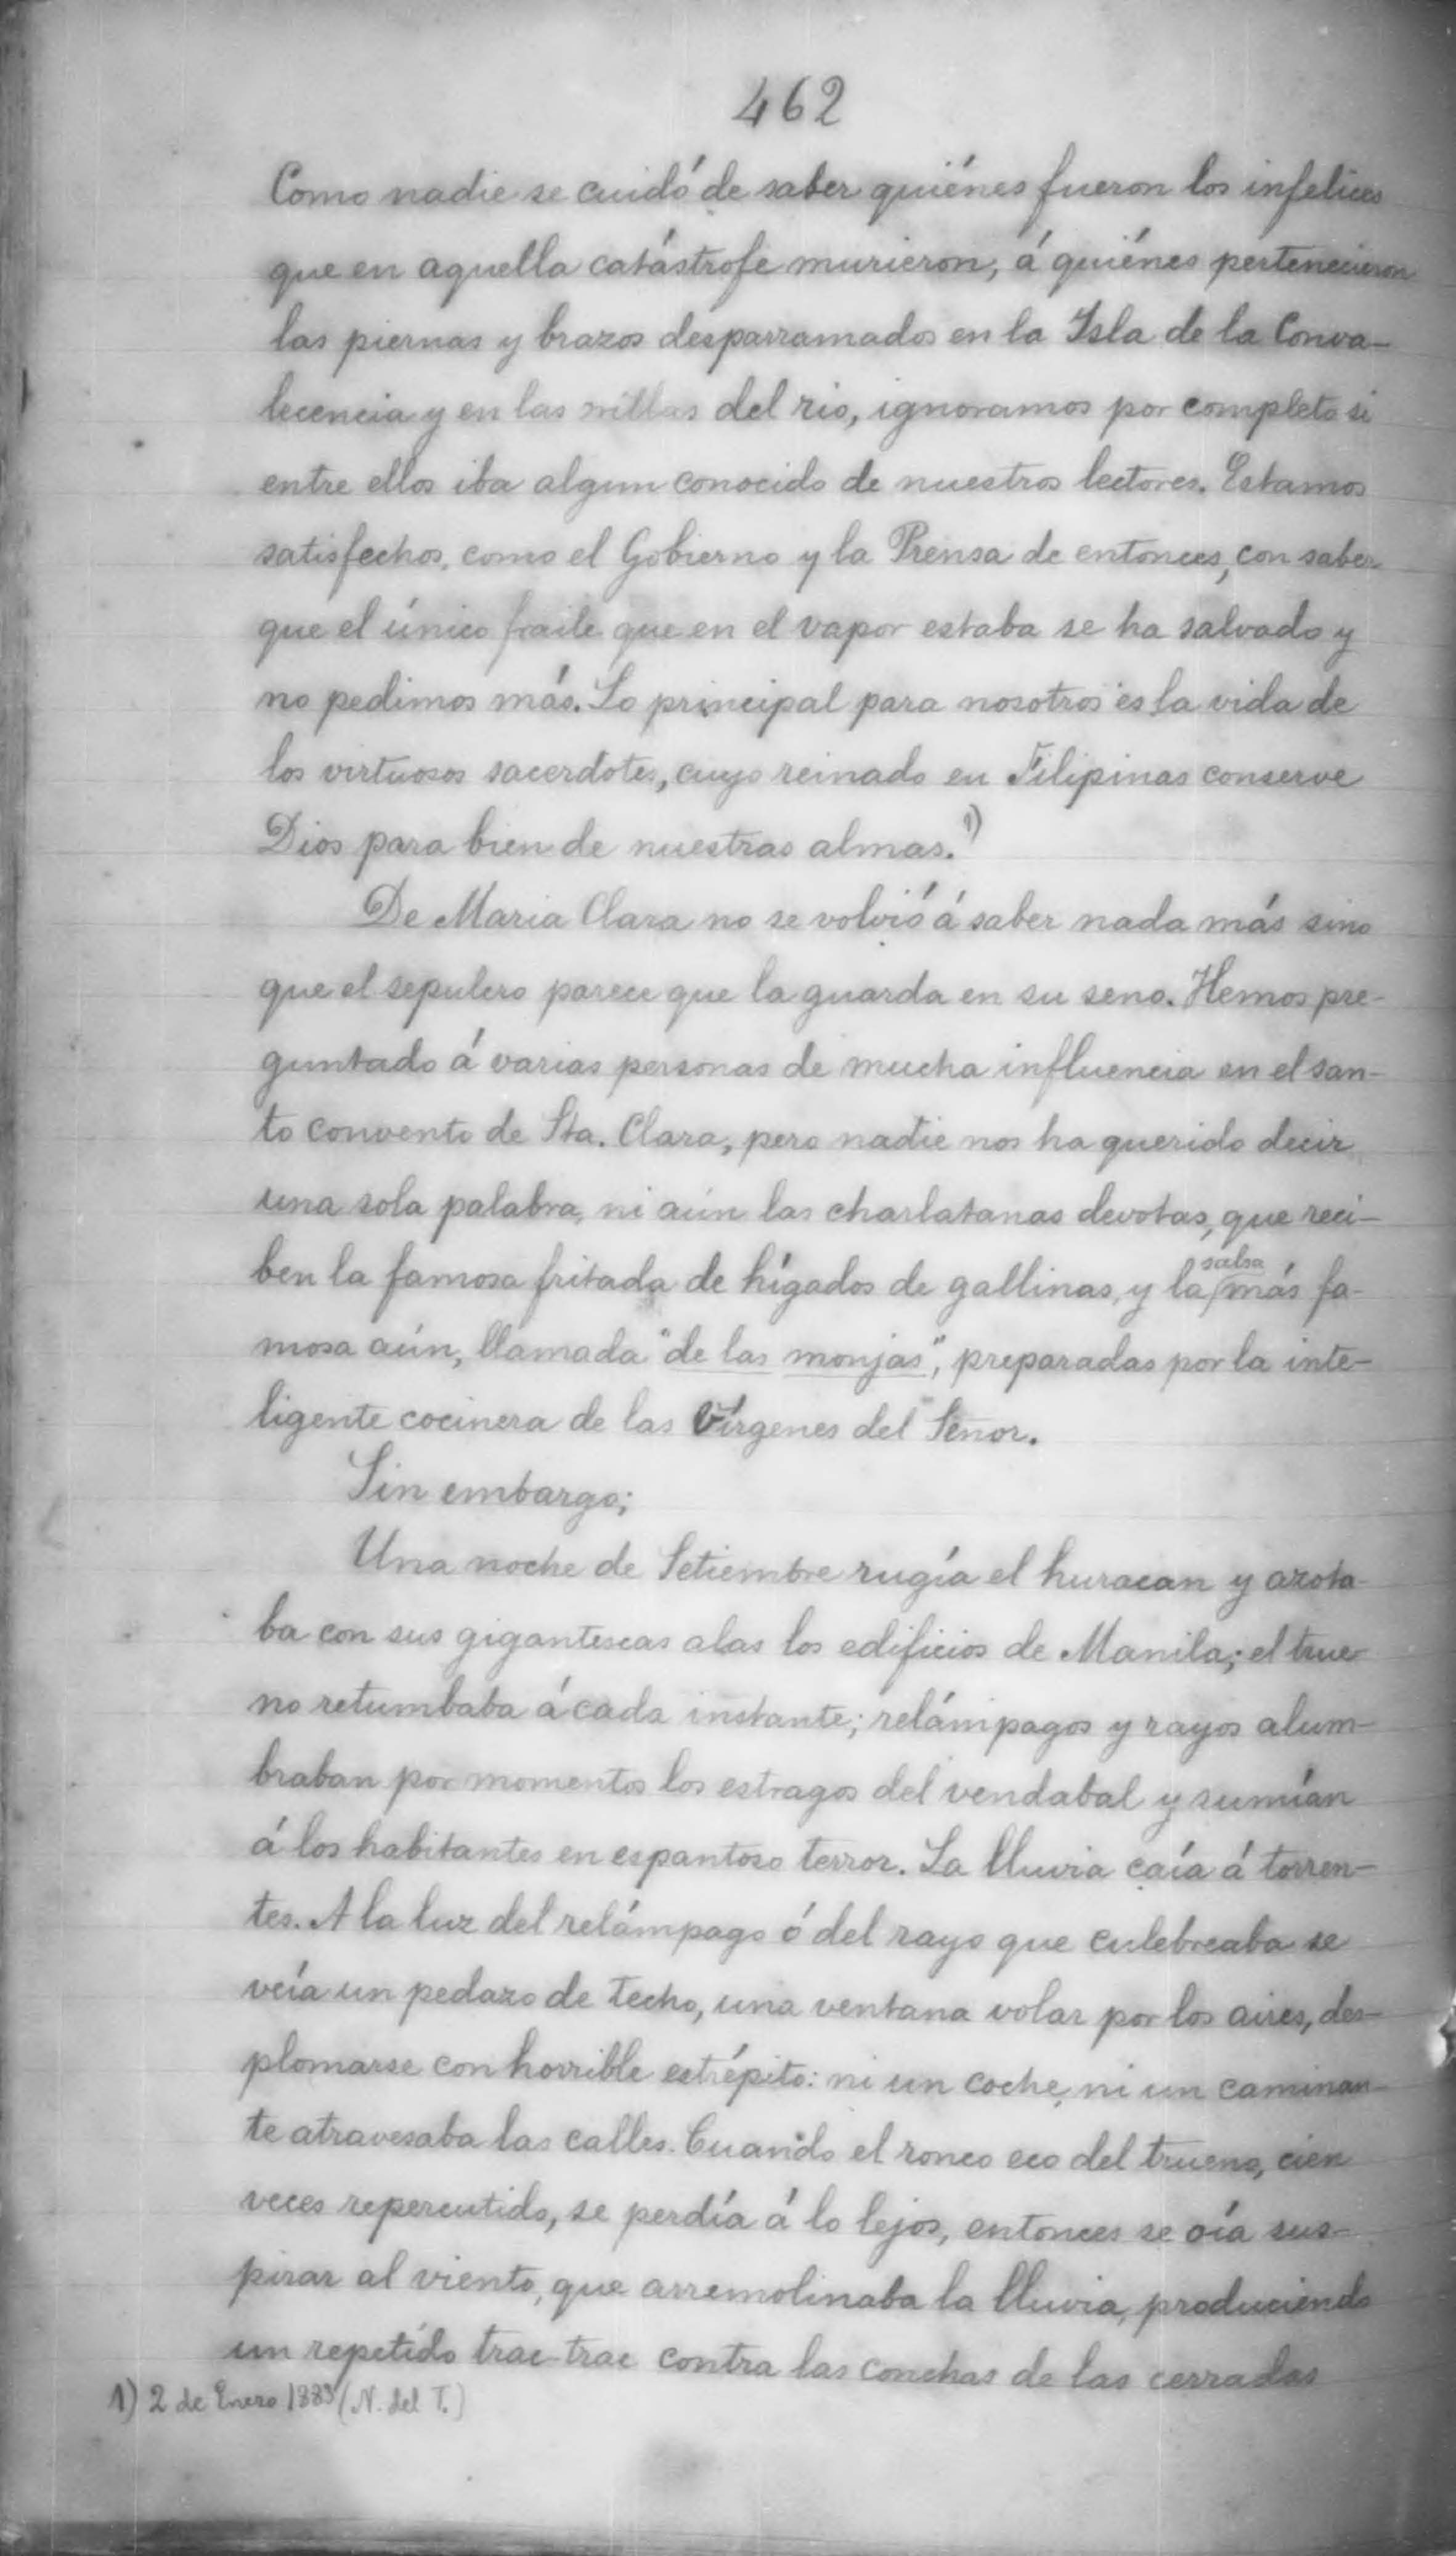 462
Como nadie se cuidó de saber quiénes fueron los infelices
que en aquella catástrofe murieron, á quiénes pertenecieron
las piernas y brazos desparramados en la Isla de la Conva-
lecencia y en las orillas del rio, ignoramos por completo si
entre ellos iba algun conocido de nuestros lectores. Estamos
satisfechos, como el Gobierno y la Prensa de entonces, con saber
que el único fraile que en el vapor estaba se ha salvado y
no pedimos más. Lo principal para nosotros es la vida de
los virtuosos sacerdotes, cuyo reinado en Filipinas conserve
Dios para bien de nuestras almas. 1)
De Maria Clara no se volvió á saber nada más sino
que el sepulcro parece que la guarda en su seno. Hemos pre-
guntado á varias personas de mucha influencia en el san-
to convento de Sta. Clara, pero nadie nos ha querido decir
una sola palabra, ni aún las charlatanas devotas, que reci-
ben la famosa fritada de hígados de gallinas, y la salsa más fa-
mosa aún, llamada "de las monjas", preparadas por la inte-
ligente cocinera de las Vírgenes del Señor.
Sin embargo;
Una noche de Setiembre rugía el huracan y azota-
ba con sus gigantescas alas los edificios de Manila; el true-
no retumbaba á cada instante; relámpagos y rayos alum-
braban por momentos los estragos del vendabal y sumían
á los habitantes en espantoso terror. La lluvia caía á torren-
tes. A la luz del relámpago ó del rayo que culebreaba se
veía un pedazo de techo, una ventana volar por los aires, des-
plomarse con horrible estrépito: ni un coche, ni un caminan-
te atravesaba las calles. Cuando el ronco eco del trueno, cien
veces repercutido, se perdía á lo lejos, entonces se oía sus-
pirar al viento, que arremolinaba la lluvia, produciendo
un repetido trac-trac contra las conchas de las cerradas
1) 2 de Enero 1883 (N. del T.)